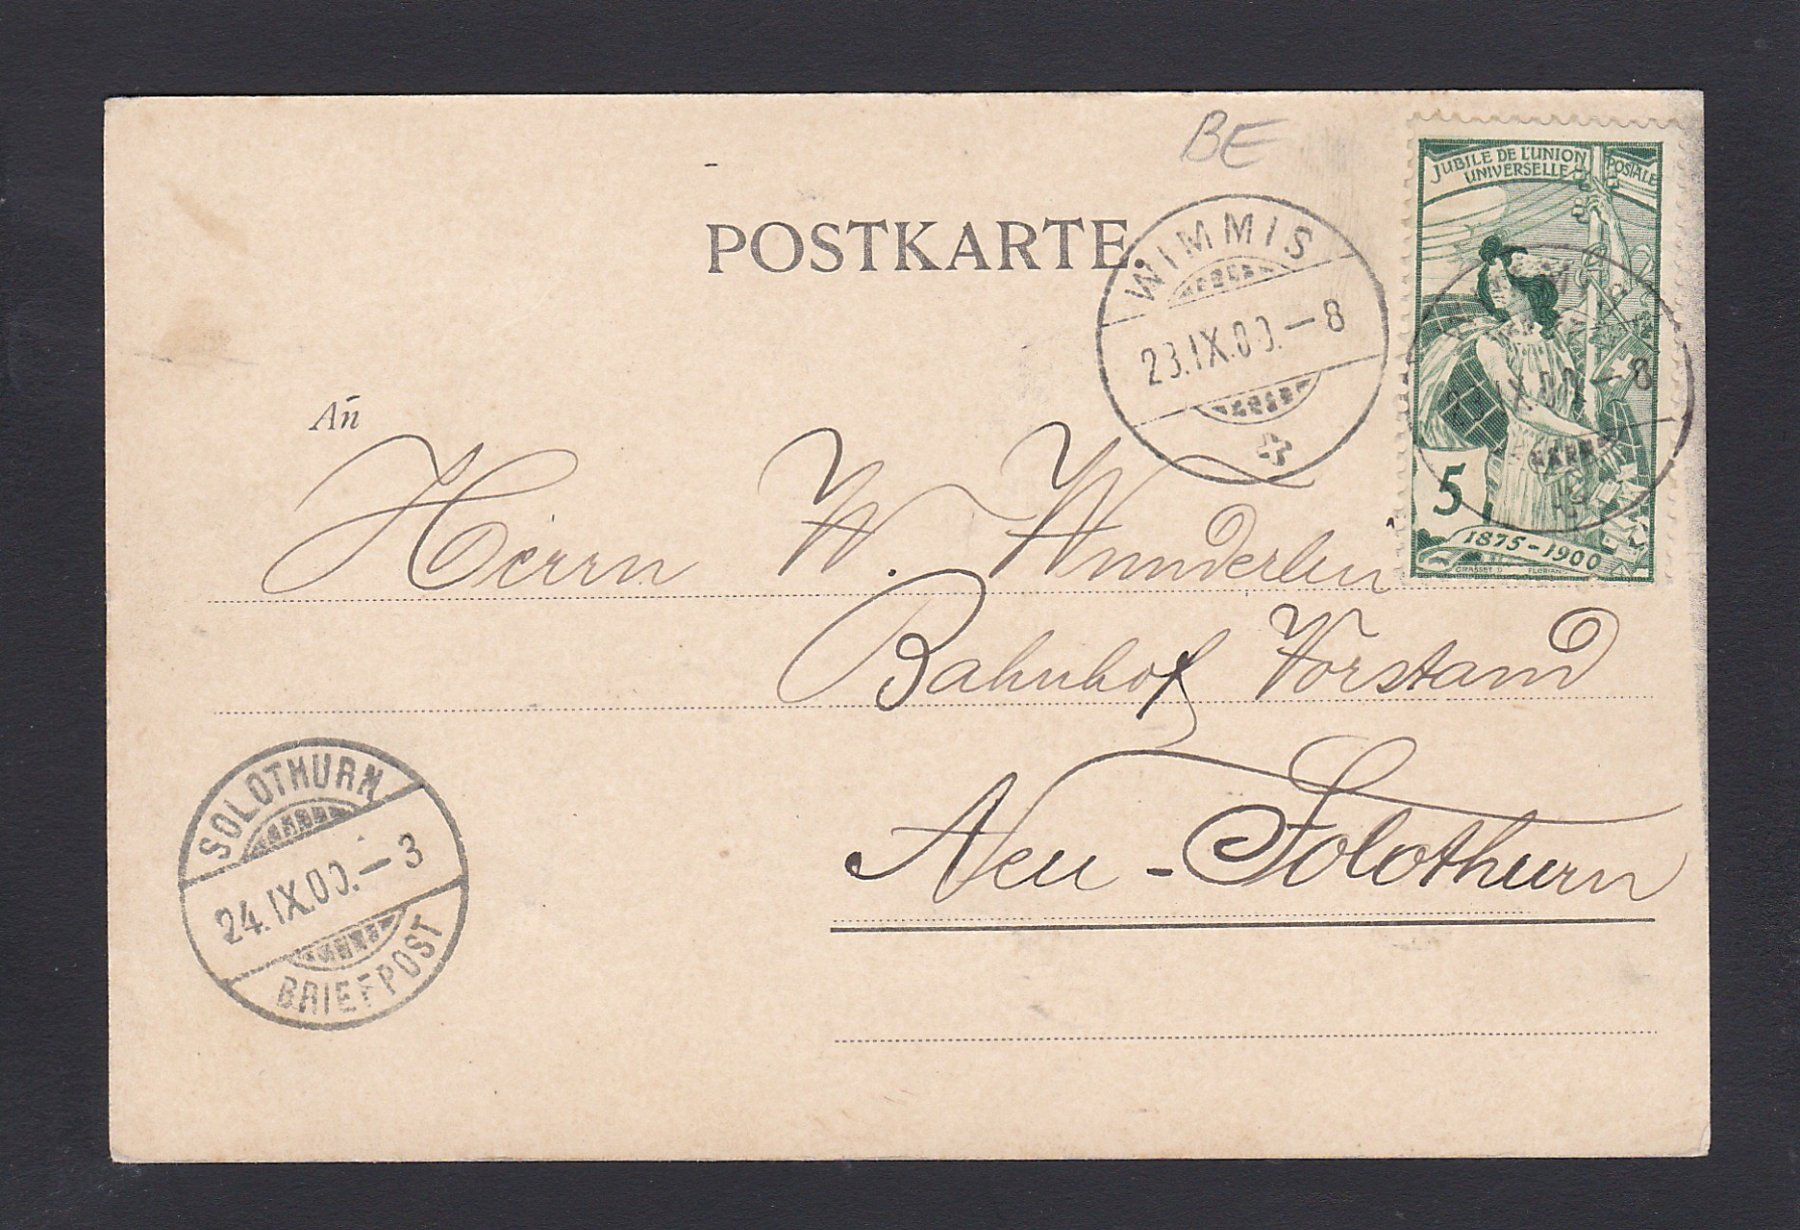 BE
JUBILÉ DE L'UNION POSTALE
UNIVERSELLE
POSTKARTE
WIMMIS
23.IX.00.–8
X.00.–8
An
5
1875–1900
GRASSET D FLORIAN
Herrn W. Wunderlin
Bahnhof Vorstand
Neu-Solothurn
SOLOTHURN
24.IX.00.–3
BRIEFPOST